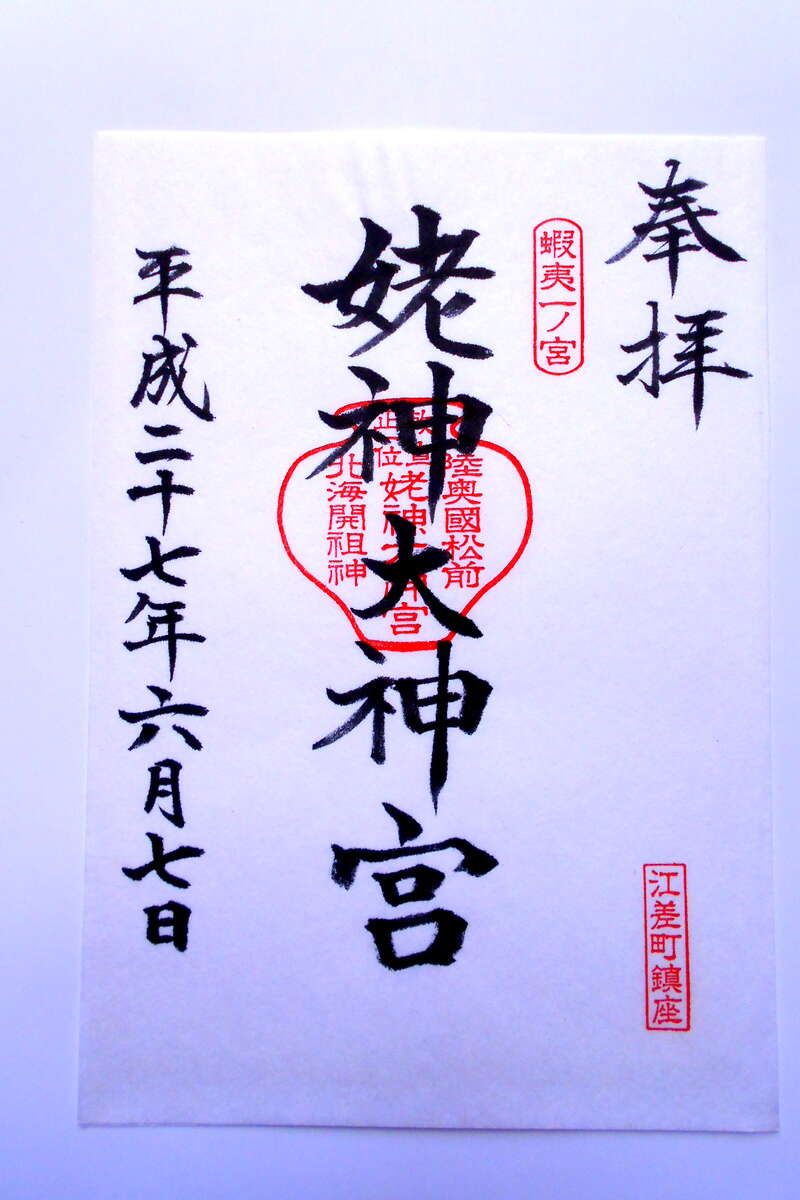 奉拝
蝦夷一ノ宮
江差町鎮座
姥神大神宮
陸奥國松前
勅宣
正一位 姥神大神宮
北海開祖神
平成二十七年六月七日